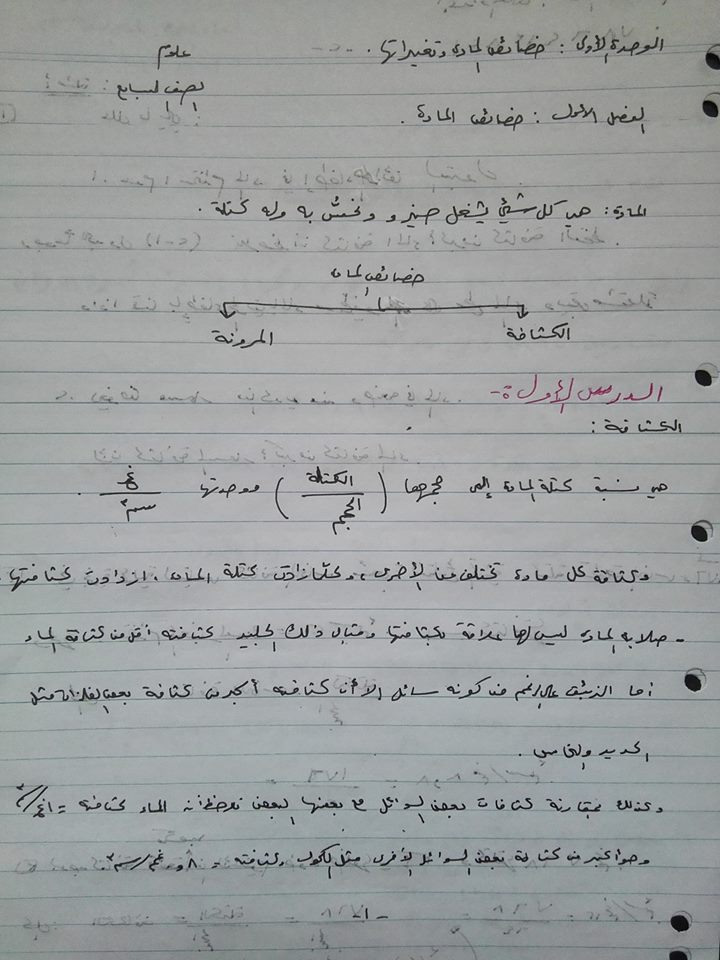 الوحدة الأولى : خصائص المادة وتغيراتها .
علوم
الصف السابع :
الفصل الأول : خصائص المادة .
المادة : هي كل شيء يشغل حيز و ونحس به وله كتلة .
خصائص المادة
الكثافة
المرونة
الدرس الأول :-
الكثافة :
هي نسبة كتلة المادة إلى حجمها ( الكتلة / الحجم ) ووحدتها غم / سم٣ .
وكثافة كل مادة تختلف من الأخرى ، وكلما زادت كتلة المادة ، ازدادت كثافتها .
- صلابة المادة ليس لها علاقة بكثافتها ومثال ذلك الجليد كثافته أقل من كثافة الماء
أما الزئبق على الرغم من كونه سائل إلا أن كثافته أكبر من كثافة بعض الفلزات مثل
الحديد والنحاس .
وكذلك بمقارنة كثافات بعض السوائل مع بعضها البعض نلاحظ أنه الماء كثافته = ١غم/سم٣
وهو أكبر من كثافة بعض السوائل الأخرى مثل الكحول وكثافته = ٨و. غم/سم٣.
- ١ -